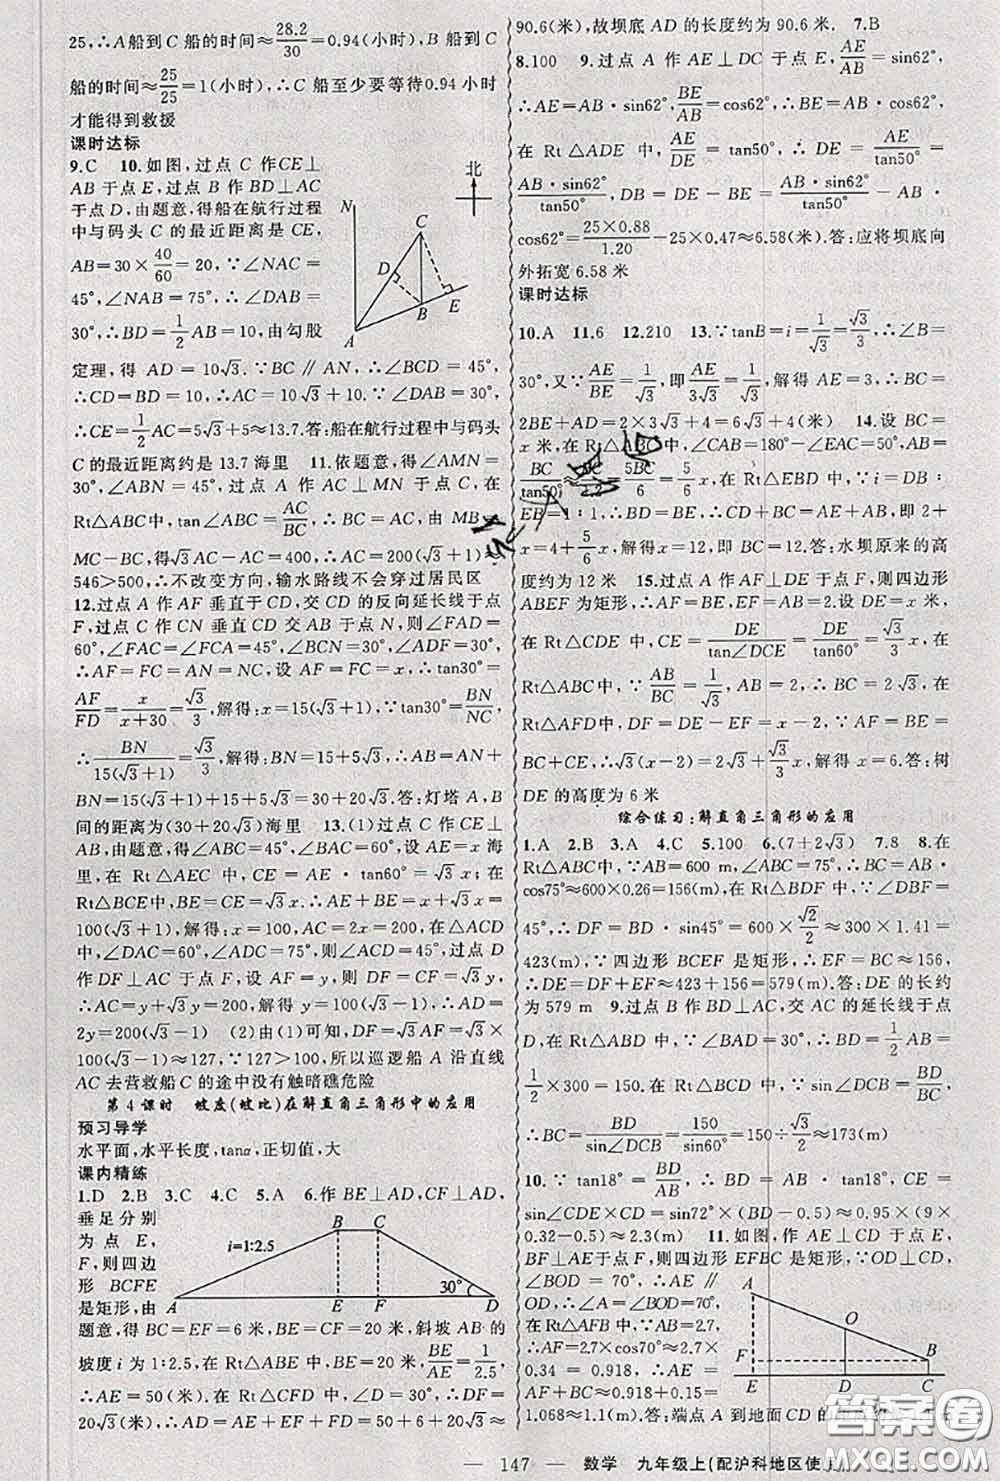 25,∴A船到C船的时间≈28.2/30=0.94(小时),B船到C
船的时间≈25/25=1(小时),∴C船至少要等待0.94小时
才能得到救援
课时达标
9.C 10.如图,过点C作CE⊥
AB于点E,过点B作BD⊥AC
于点D,由题意,得船在航行过程
中与码头C的最近距离是CE,
AB=30×40/60=20,∵∠NAC=
45°,∠NAB=75°,∴∠DAB=
30°,∴BD=1/2AB=10,由勾股
北
N
C
D
B
E
A
定理,得AD=10√3.∵BC∥AN,∴∠BCD=45°,
∴CD=BD=10,∴AC=10√3+10.∵∠DAB=45°,
∴CE=1/2AC=5√3+5≈13.7.答:船在航行过程中与码头
C的最近距离约是13.7海里 11.依题意得∠AMN=
30°,∠ABN=45°,过点A作AC⊥MN于点C,在
Rt△ABC中,tan∠ABC=AC/BC,∴AC=BC,由MB=
MC-BC,得√3AC-AC=400,∴AC=200(√3+1)≈
546>500,∴不改变方向,输水路线不会穿过居民区
12.过点A作AF垂直于CD,交CD的反向延长线于点
F,过点C作CN垂直CD交AB于点N,则∠FAD=
60°,∠FAC=∠FCA=45°,∠BCN=30°,∠ADF=30°,
∴AF=FC=AN=NC,设AF=FC=x,∴tan30°=
AF/FD=x/(x+30)=√3/3,解得:x=15(√3+1).∵tan30°=BN/NC,
∴BN/15(√3+1)=√3/3,解得:BN=15+5√3.∴AB=AN+
BN=15(√3+1)+15+5√3=30+20√3.答:灯塔A,B
间的距离为(30+20√3)海里 13.(1)过点C作CE⊥
AB于点E,由题意得:∠ABC=45°,∠BAC=60°,设AE=x海
里,在Rt△AEC中,CE=AE·tan60°=√3x;在
Rt△BCE中,BE=CE=√3x.∴AE+BE=x+√3x=
100(√3+1),解得:x=100,AC=2x=200.在△ACD
中,∠DAC=60°,∠ADC=75°,则∠ACD=45°,过点D
作DF⊥AC于点F,设AF=y,则DF=CF=√3y,
∴AC=y+√3y=200,解得y=100(√3-1),∴AD=
2y=200(√3-1) (2)由(1)可知,DF=√3AF=√3×
100(√3-1)≈127,∵127>100,所以巡逻船A沿直线
AC去营救船C的途中没有触暗礁危险
第4课时 坡度(坡比)在解直角三角形中的应用
预习导学
水平面,水平长度,tanα,正切值,大
课内精练
1.D 2.B 3.C 4.C 5.A 6.作BE⊥AD,CF⊥AD,
垂足分别
为点E,
F,则四边
形BCFE
是矩形,由
B C
i=1:2.5
30°
A E F D
题意,得BC=EF=6米,BE=CF=20米,斜坡AB的
坡度i为1:2.5,在Rt△ABE中,∵BE=20米,BE/AE=1/2.5,
∴AE=50(米).在Rt△CFD中,∠D=30°,∴DF=
20√3(米),∴AD=AE+EF+FD=50+6+20√3≈
90.6(米),故坝底AD的长度约为90.6米 7.B
8.100 9.过点A作AE⊥DC于点E,AE/AB=sin62°,
∴AE=AB·sin62°,BE/AB=cos62°,∴BE=AB·cos62°,
在Rt△ADE中,AE/DE=tan50°,∴DE=AE/tan50°=
AB·sin62°/tan50°,DB=DE-BE=AB·sin62°/tan50°-AB·
cos62°=25×0.88/1.20-25×0.47≈6.58(米).答:应将坝底向
外拓宽6.58米
课时达标
10.A 11.6 12.210 13.∵tanB=i=1/√3=√3/3,∴∠B=
30°,又∵AE/BE=1/√3,即AE/3√3=1/√3,解得AE=3,∴BC=
2BE+AD=2×3√3+4=6√3+4(米) 14.设BC=
x米,在Rt△ABC中,∠CAB=180°-∠EAC=50°,AB=
BC/tan50°≈BC/1.2=5BC/6=5/6x,在Rt△EBD中,∵i=DB:
EB=1:1,∴BD=BE,∴CD+BC=AE+AB,即2+
x=4+5/6x,解得x=12,即BC=12.答:水坝原来的高
度约为12米 15.过点A作AF⊥DE于点F,则四边形
ABEF为矩形,∴AF=BE,EF=AB=2.设DE=x米,
在Rt△CDE中,CE=DE/tan∠DCE=DE/tan60°=√3/3x,在
Rt△ABC中,∵AB/BC=1/√3,AB=2,∴BC=2√3,在
Rt△AFD中,DF=DE-EF=x-2,∵AF=BE=
BC+CE,∴√3(x-2)=2√3+√3/3x,解得x=6.答:树
DE的高度为6米
综合练习:解直角三角形的应用
1.A 2.B 3.A 4.C 5.100 6.(7+2√3) 7.8 8.在
Rt△ABC中,∵AB=600m,∠ABC=75°,∴BC=AB·
cos75°≈600×0.26=156(m),在Rt△BDF中,∵∠DBF=
45°,∴DF=BD·sin45°=600×√2/2≈300×1.41=
423(m),∵四边形BCEF是矩形,∴EF=BC≈156,
∴DE=DF+EF≈423+156=579(m).答:DE的长约
为579m 9.过点B作BD⊥AC,交AC的延长线于点
D,在Rt△ABD中,∵∠BAD=30°,∴BD=1/2AB=
1/2×300=150(m),在Rt△BCD中,∵sin∠DCB=BD/BC,
∴BC=BD/sin∠DCB=150/sin60°=150÷√3/2≈173(m)
10.∵tan18°=BD/AB,∴BD=AB·tan18°≈0.5,CE=
sin∠CDE×CD=sin72°×(BD-0.5)≈0.95×(9×
0.32-0.5)≈2.3(m) 11.如图,作AE⊥CD于点E,
BF⊥AE于点F,则四边形EFBC是矩形,∵OD⊥CD,
∠BOD=70°,∴AE∥
OD,∴∠A=∠BOD=70°,
在Rt△AFB中,∵AB=2.7,
∴AF=2.7×cos70°≈2.7×
0.34=0.918,∴AE=
AF+BC≈0.918+0.15=
A
O
F B
E D C
1.068≈1.1(m).答:端点A到地面CD的
答案圈
MXQE.COM
— 147 — 数学 九年级上(配沪科地区使